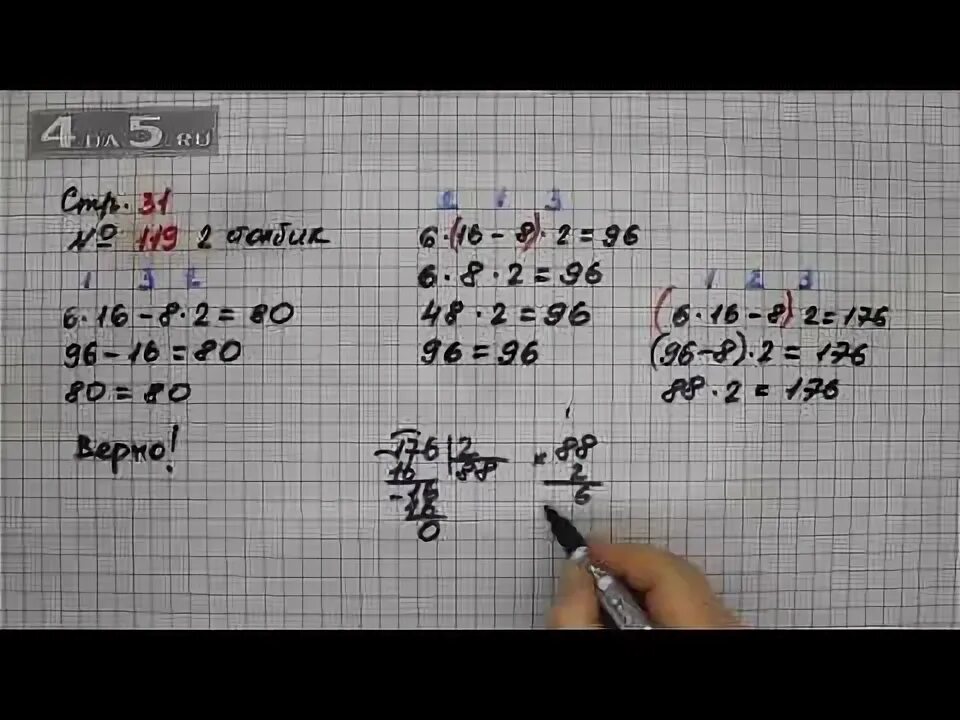 4 на 5.RU
Стр. 31
№ 119 2 столбик
1 3 2
6·16-8·2=80
96-16=80
80=80
Верно!
2 1 3
6·(16-8)·2=96
6·8·2=96
48·2=96
96=96
1 2 3
(6·16-8)2=176
(96-8)·2=176
88·2=176
-176|2
16 88
-16
16
0
1
×88
2
6